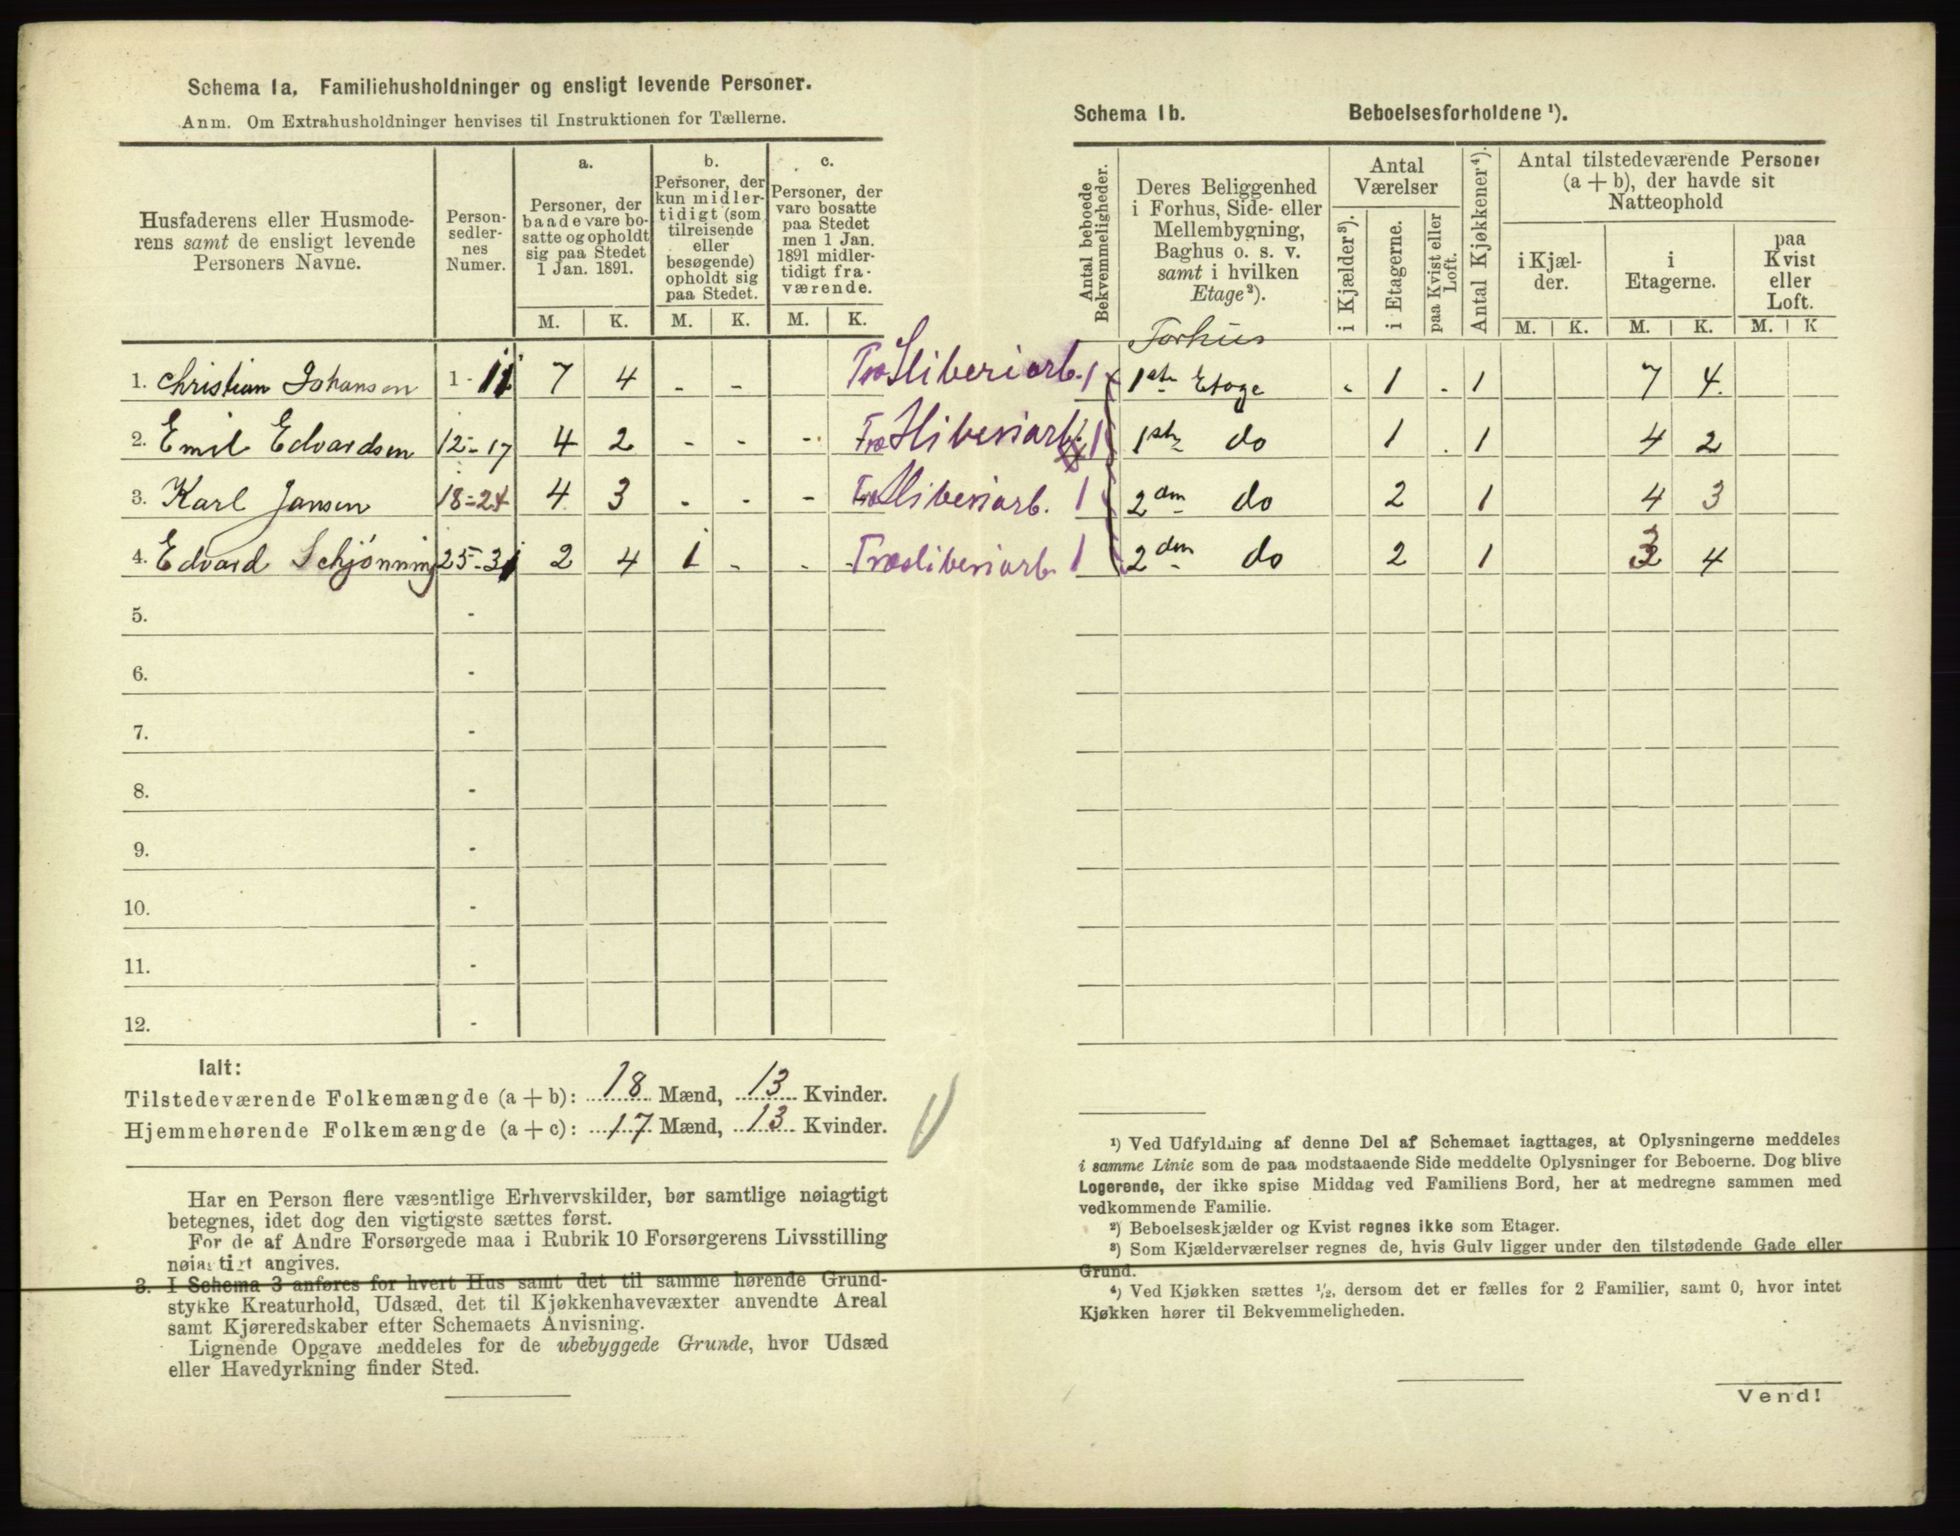 Schema 1a. Familiehusholdninger og ensligt levende Personer.
Anm. Om Extrahusholdninger henvises til Instruktionen for Tællerne.
Husfaderens eller Husmode-
rens samt de ensligt levende
Personers Navne.
Person-
sedler-
nes
Numer.
a.
Personer, der
baade vare bo-
satte og opholdt
sig paa Stedet
1 Jan. 1891.
b.
Personer, der
kun midler-
tidigt (som
tilreisende
eller
besøgende)
opholdt sig
paa Stedet.
c.
Personer, der
vare bosatte
paa Stedet
men 1 Jan.
1891 midler-
tidigt fra-
værende.
M. K. M. K. M. K.
1. Christian Johansen 1 - 11 7 4 - - Træsliberiarb.
2. Emil Edvardsen 12 - 17 4 2 - - - Træsliberiarb.
3. Karl Jansen 18 - 24 4 3 - - - Træsliberiarb.
4. Edvard Schjønning 25 - 31 2 4 1 - - - Træsliberiarb.
5. -
6. -
7. -
8. -
9. -
10. -
11. -
12. -
Ialt:
Tilstedeværende Folkemængde (a + b): 18 Mænd, 13 Kvinder.
Hjemmehørende Folkemængde (a + c): 17 Mænd, 13 Kvinder.
Har en Person flere væsentlige Erhvervskilder, bør samtlige nøiagtigt
betegnes, idet dog den vigtigste sættes først.
For de af Andre Forsørgede maa i Rubrik 10 Forsørgerens Livsstilling
nøiagtigt angives.
3. I Schema 3 anføres for hvert Hus samt det til samme hørende Grund-
stykke Kreaturhold, Udsæd, det til Kjøkkenhavevæxter anvendte Areal
samt Kjøreredskaber efter Schemaets Anvisning.
Lignende Opgave meddeles for de ubebyggede Grunde, hvor Udsæd
eller Havedyrkning finder Sted.
Schema 1b. Beboelsesforholdene ¹).
Antal beboede
Bekvemmeligheder.
Deres Beliggenhed
i Forhus, Side- eller
Mellembygning,
Baghus o. s. v.
samt i hvilken
Etage²).
Antal
Værelser
i Kjælder³).
i Etagerne.
paa Kvist eller
Loft.
Antal Kjøkkener⁴).
Antal tilstedeværende Personer
(a + b), der havde sit
Natteophold
i Kjæl-
der.
i
Etagerne.
paa
Kvist
eller
Loft.
M. K. M. K. M. K
Forhus
1 1ste Etage - 1 - 1 7 4.
1 1ste do 1 . 1 4 2
1 2den do 2 1 4 3
1 2den do 2 1 3 4
¹) Ved Udfyldning af denne Del af Schemaet iagttages, at Oplysningerne meddeles
i samme Linie som de paa modstaaende Side meddelte Oplysninger for Beboerne. Dog blive
Logerende, der ikke spise Middag ved Familiens Bord, her at medregne sammen med
vedkommende Familie.
²) Beboelseskjælder og Kvist regnes ikke som Etager.
³) Som Kjælderværelser regnes de, hvis Gulv ligger under den tilstødende Gade eller
Grund.
⁴) Ved Kjøkken sættes ½, dersom det er fælles for 2 Familier, samt 0, hvor intet
Kjøkken hører til Bekvemmeligheden.
Vend!